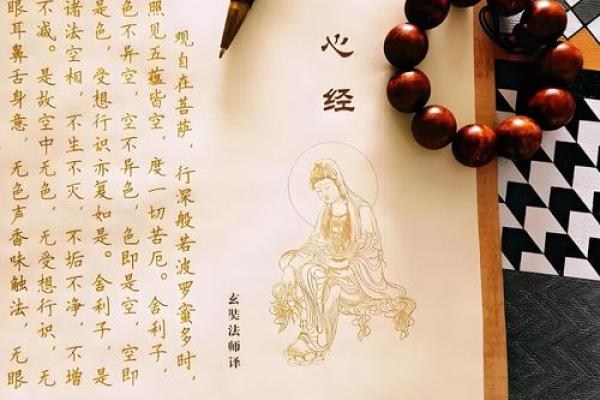 心经
玄奘法师译
观自在菩萨，行深般若波罗蜜多时，
照见五蕴皆空，度一切苦厄。舍利子，
色不异空，空不异色，色即是空，空即
是色，受想行识亦复如是。舍利子，是
诸法空相，不生不灭，不垢不净，不增
不减。是故空中无色，无受想行识，无
眼耳鼻舌身意，无色声香味触法，无眼